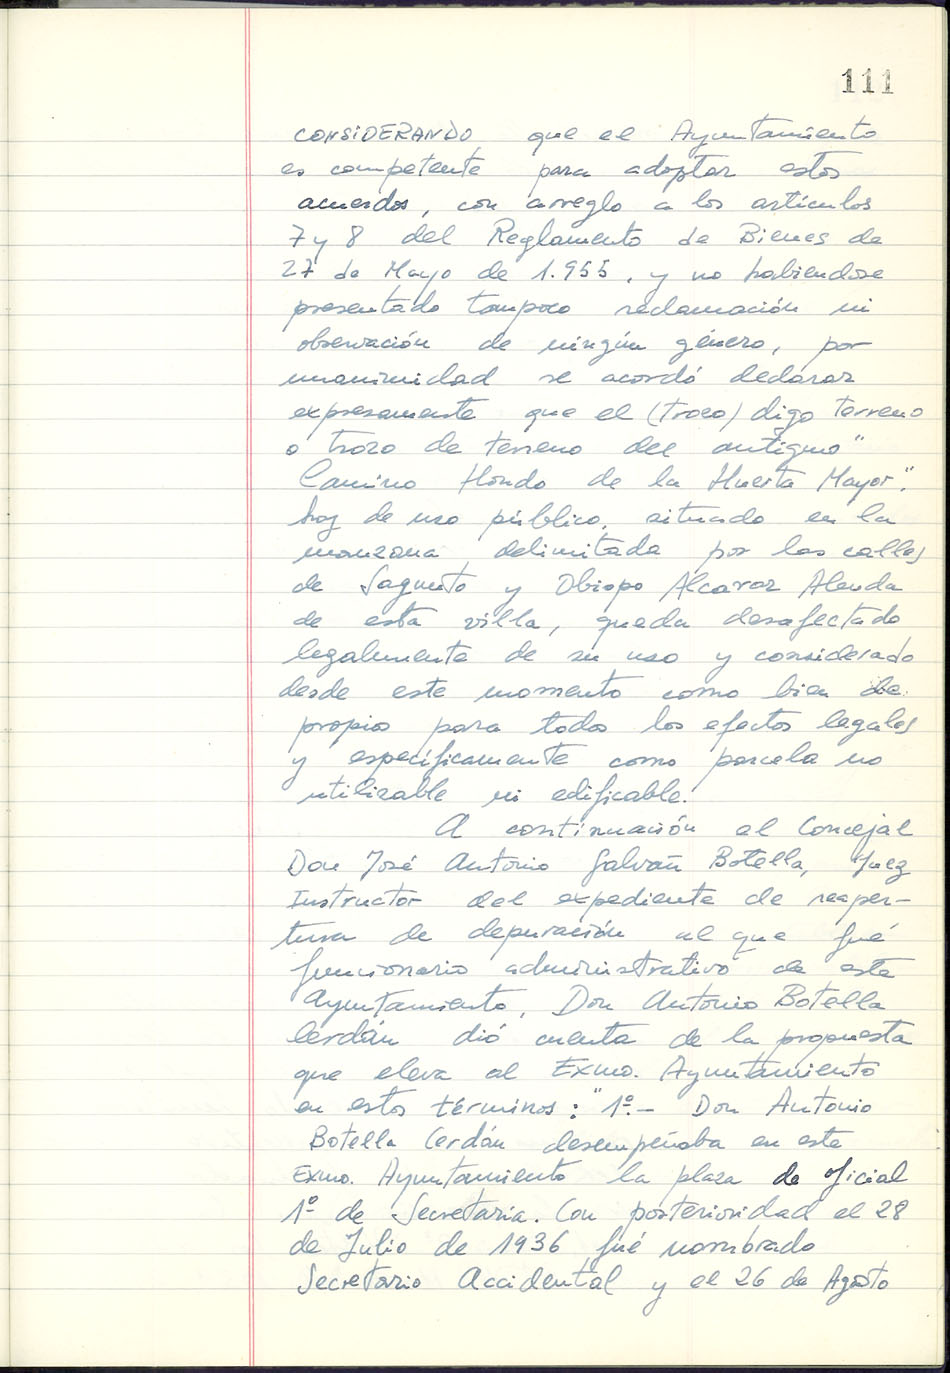 111
CONSIDERANDO que el Ayuntamiento
es competente para adoptar estos
acuerdos, con arreglo a los artículos
7 y 8 del Reglamento de Bienes de
27 de Mayo de 1.955, y no habiendose
presentado tampoco reclamación ni
observación de ningún género, por
unanimidad se acordó declarar
expresamente que el (trozo) digo terreno
o trozo de terreno del antiguo "
Camino Hondo de la Huerta Mayor",
hoy de uso público, situado en la
manzana delimitada por las calles
de Sagunto y Obispo Alcaraz Alenda
de esta villa, queda desafectado
legalmente de su uso y considerado
desde este momento como bien de
propio para todos los efectos legales
y específicamente como parcela no
utilizable ni edificable.
A continuación el Concejal
Don José Antonio Galvañ Botella, Juez
Instructor del expediente de reaper-
tura de depuración al que fué
funcionario administrativo de este
Ayuntamiento, Don Antonio Botella
Cerdán dió cuenta de la propuesta
que eleva al Exmo. Ayuntamiento
en estos términos: "1º.- Don Antonio
Botella Cerdán desempeñaba en este
Exmo. Ayuntamiento la plaza de oficial
1º de Secretaria. Con posterioridad el 28
de Julio de 1936 fué nombrado
Secretario Accidental y el 26 de Agosto